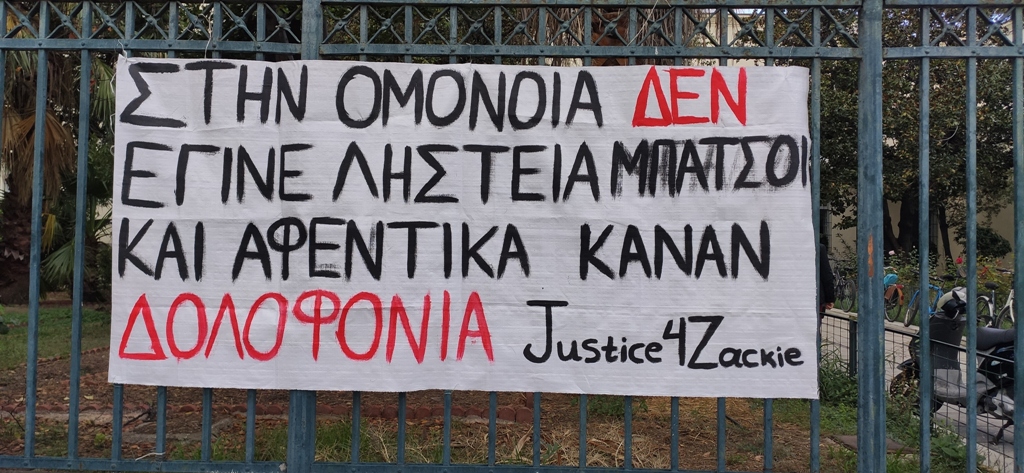 ΣΤΗΝ ΟΜΟΝΟΙΑ ΔΕΝ
ΕΓΙΝΕ ΛΗΣΤΕΙΑ ΜΠΑΤΣΟΙ
ΚΑΙ ΑΦΕΝΤΙΚΑ ΚΑΝΑΝ
ΔΟΛΟΦΟΝΙΑ Justice4Zackie